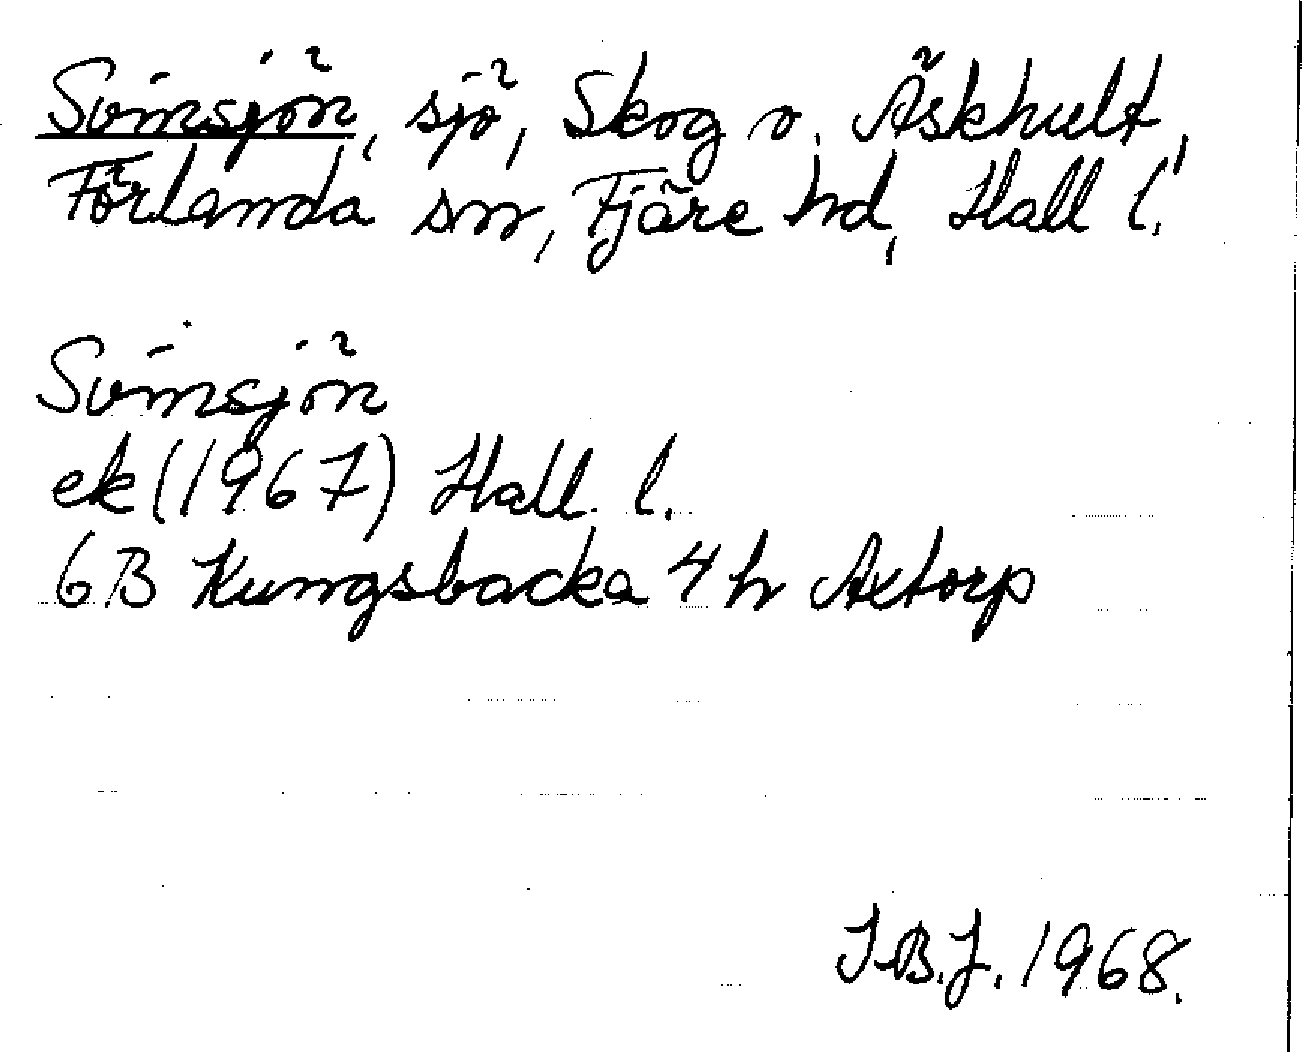 Svinsjön, sjö, Skog o. Äskhult,
Förlanda sn, Fjäre hd, Hall l.
Svinsjön
ek (1967) Hall. l.
6B Kungsbacka 4 h Axtorp
I.B.J. 1968.